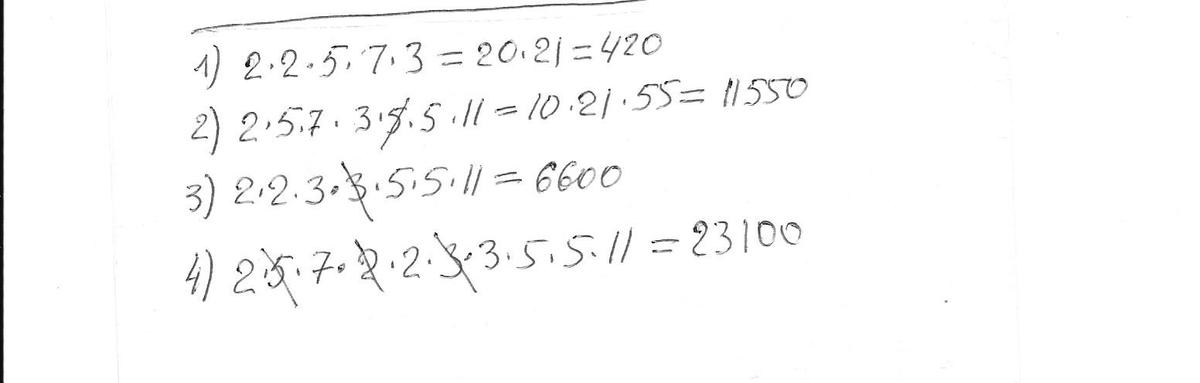 1) 2·2·5·7·3 = 20·21 = 420
2) 2·5·7·3·5·5·11 = 10·21·55 = 11550
3) 2·2·3·3·5·5·11 = 6600
4) 2·5·7·2·2·3·3·5·5·11 = 23100